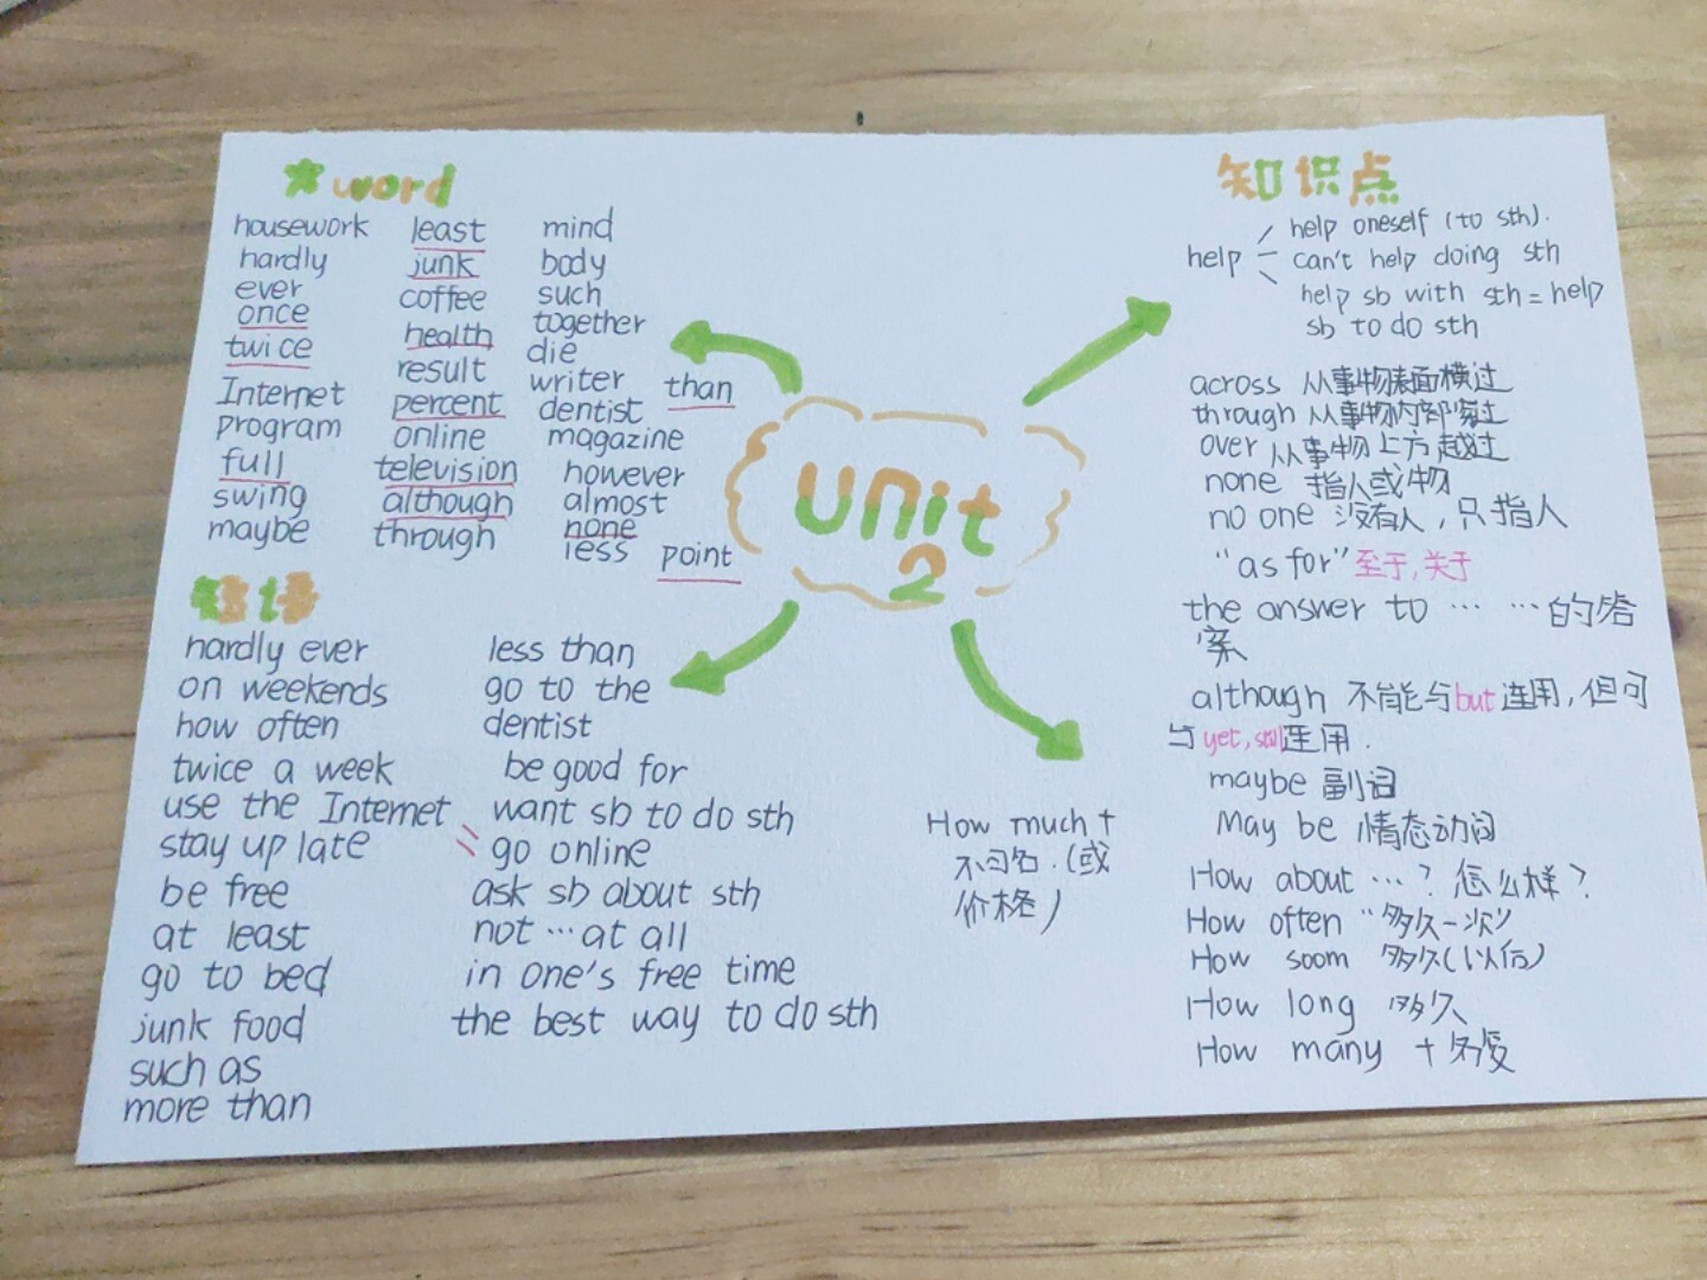 word
housework
hardly
ever
once
twice
Internet
program
full
swing
maybe
least
junk
coffee
health
result
percent
online
television
although
through
mind
body
such
together
die
writer
than
dentist
magazine
however
almost
none
less
point
短语
hardly ever
on weekends
how often
twice a week
use the Internet
stay up late
be free
at least
go to bed
junk food
such as
more than
less than
go to the
dentist
be good for
want sb to do sth
go online
ask sb about sth
not … at all
in one's free time
the best way to do sth
Unit
2
知识点
help
help oneself (to sth).
can't help doing sth
help sb with sth = help
sb to do sth
across 从事物表面横过
through 从事物内部穿过
over 从事物上方越过
none 指人或物
no one 没有人，只指人
"as for" 至于,关于
the answer to … …的答
案
although 不能与but连用，但可
与yet, still连用.
maybe 副词
May be 情态动词
How about …? 怎么样?
How often "多久一次"
How soom 多久(以后)
How long 多久
How many + 名复
How much +
不可名.(或
价格)